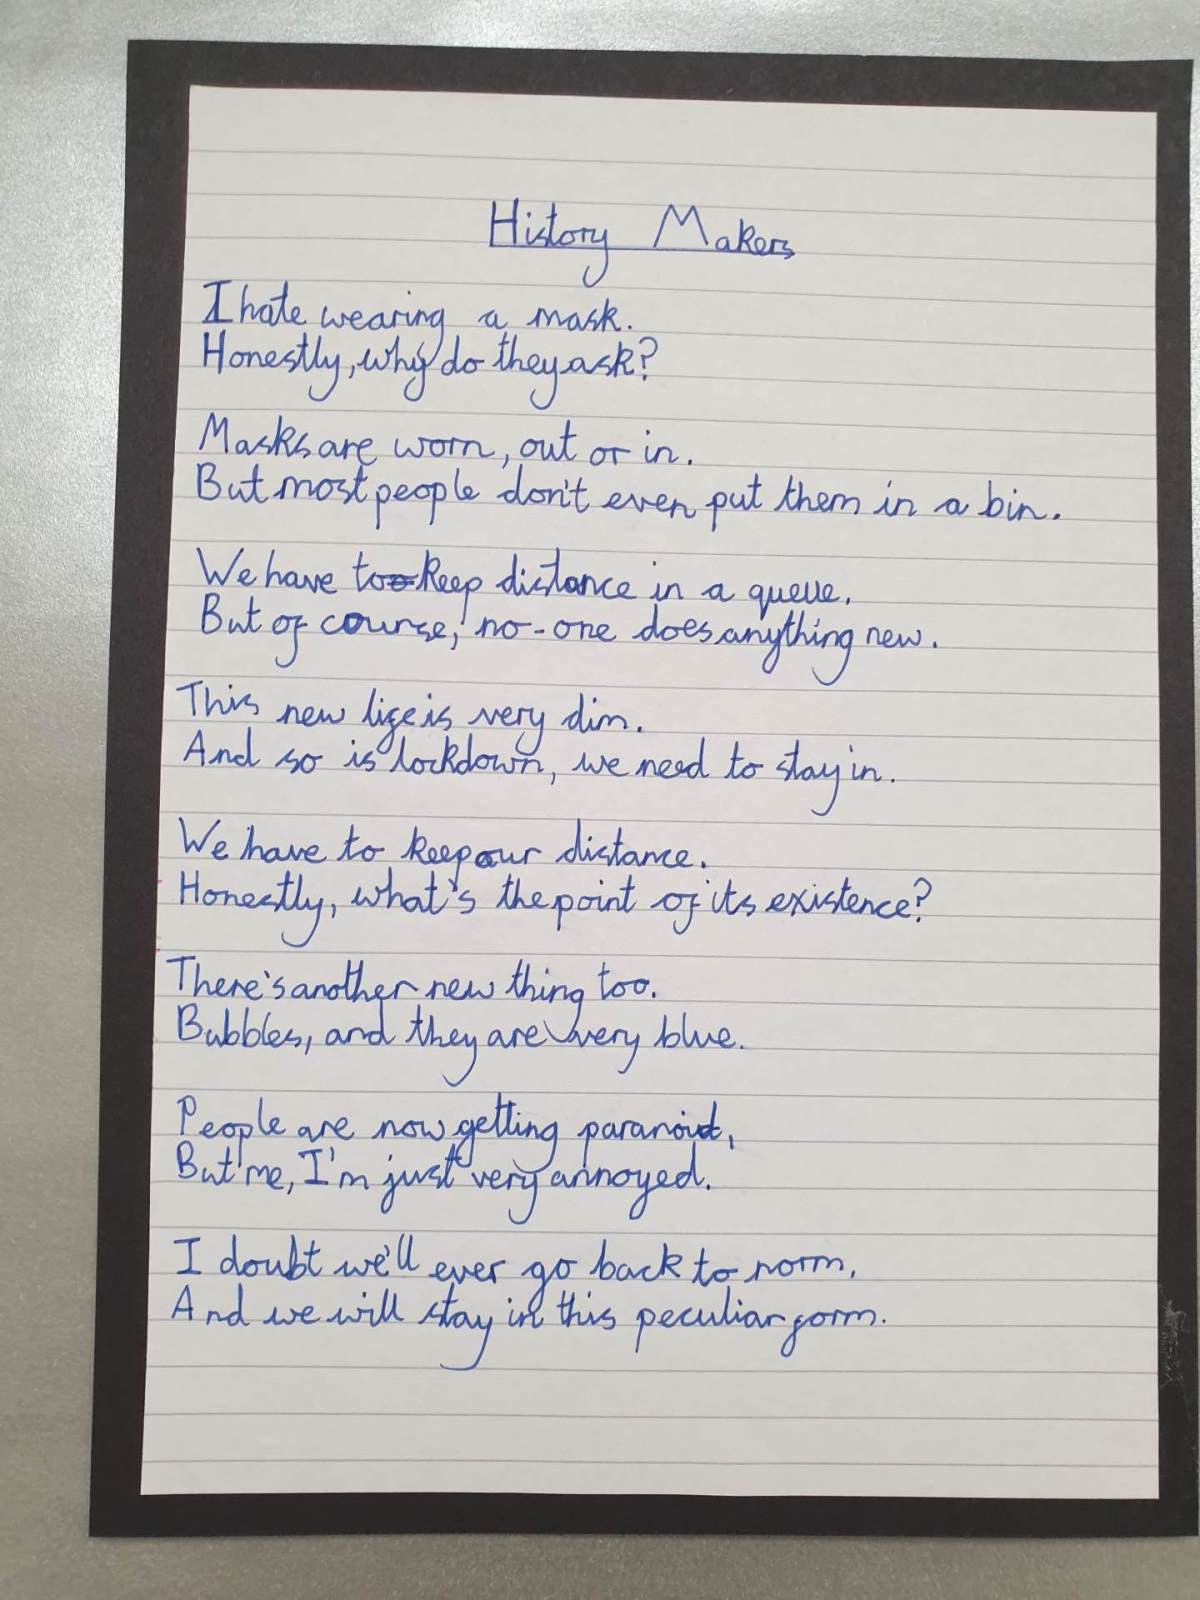 History Makers
I hate wearing a mask.
Honestly, why do they ask?
Masks are worn, out or in.
But most people don't even put them in a bin.
We have to keep distance in a queue.
But of course, no-one does anything new.
This new life is very dim.
And so is lockdown, we need to stay in.
We have to keep our distance.
Honestly, what's the point of its existence?
There's another new thing too.
Bubbles, and they are very blue.
People are now getting paranoid,
But me, I'm just very annoyed.
I doubt we'll ever go back to norm,
And we will stay in this peculiar form.